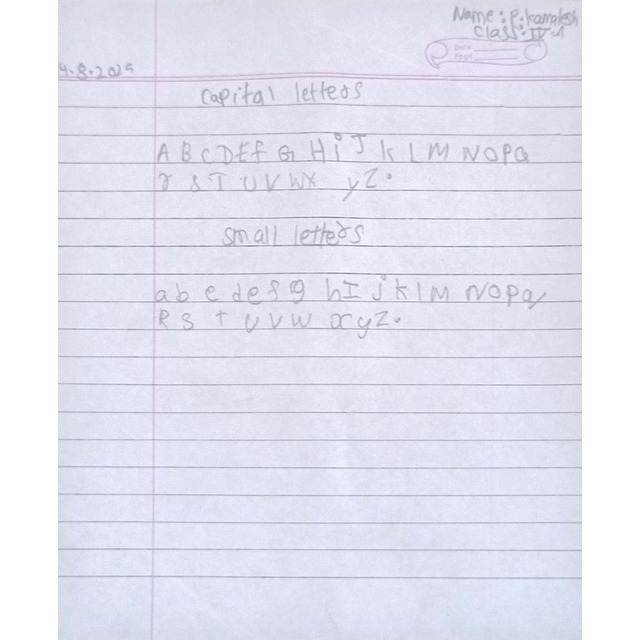 Name : P. kamalesh
Class : IV - A
Date
Page
4.8.2025
Capital letters
A B C D E f G H i J k L M N O P Q
r S T U V W X y Z.
small letters
a b c d e f g h I j k l M N O P q
R S t U V W x y Z.